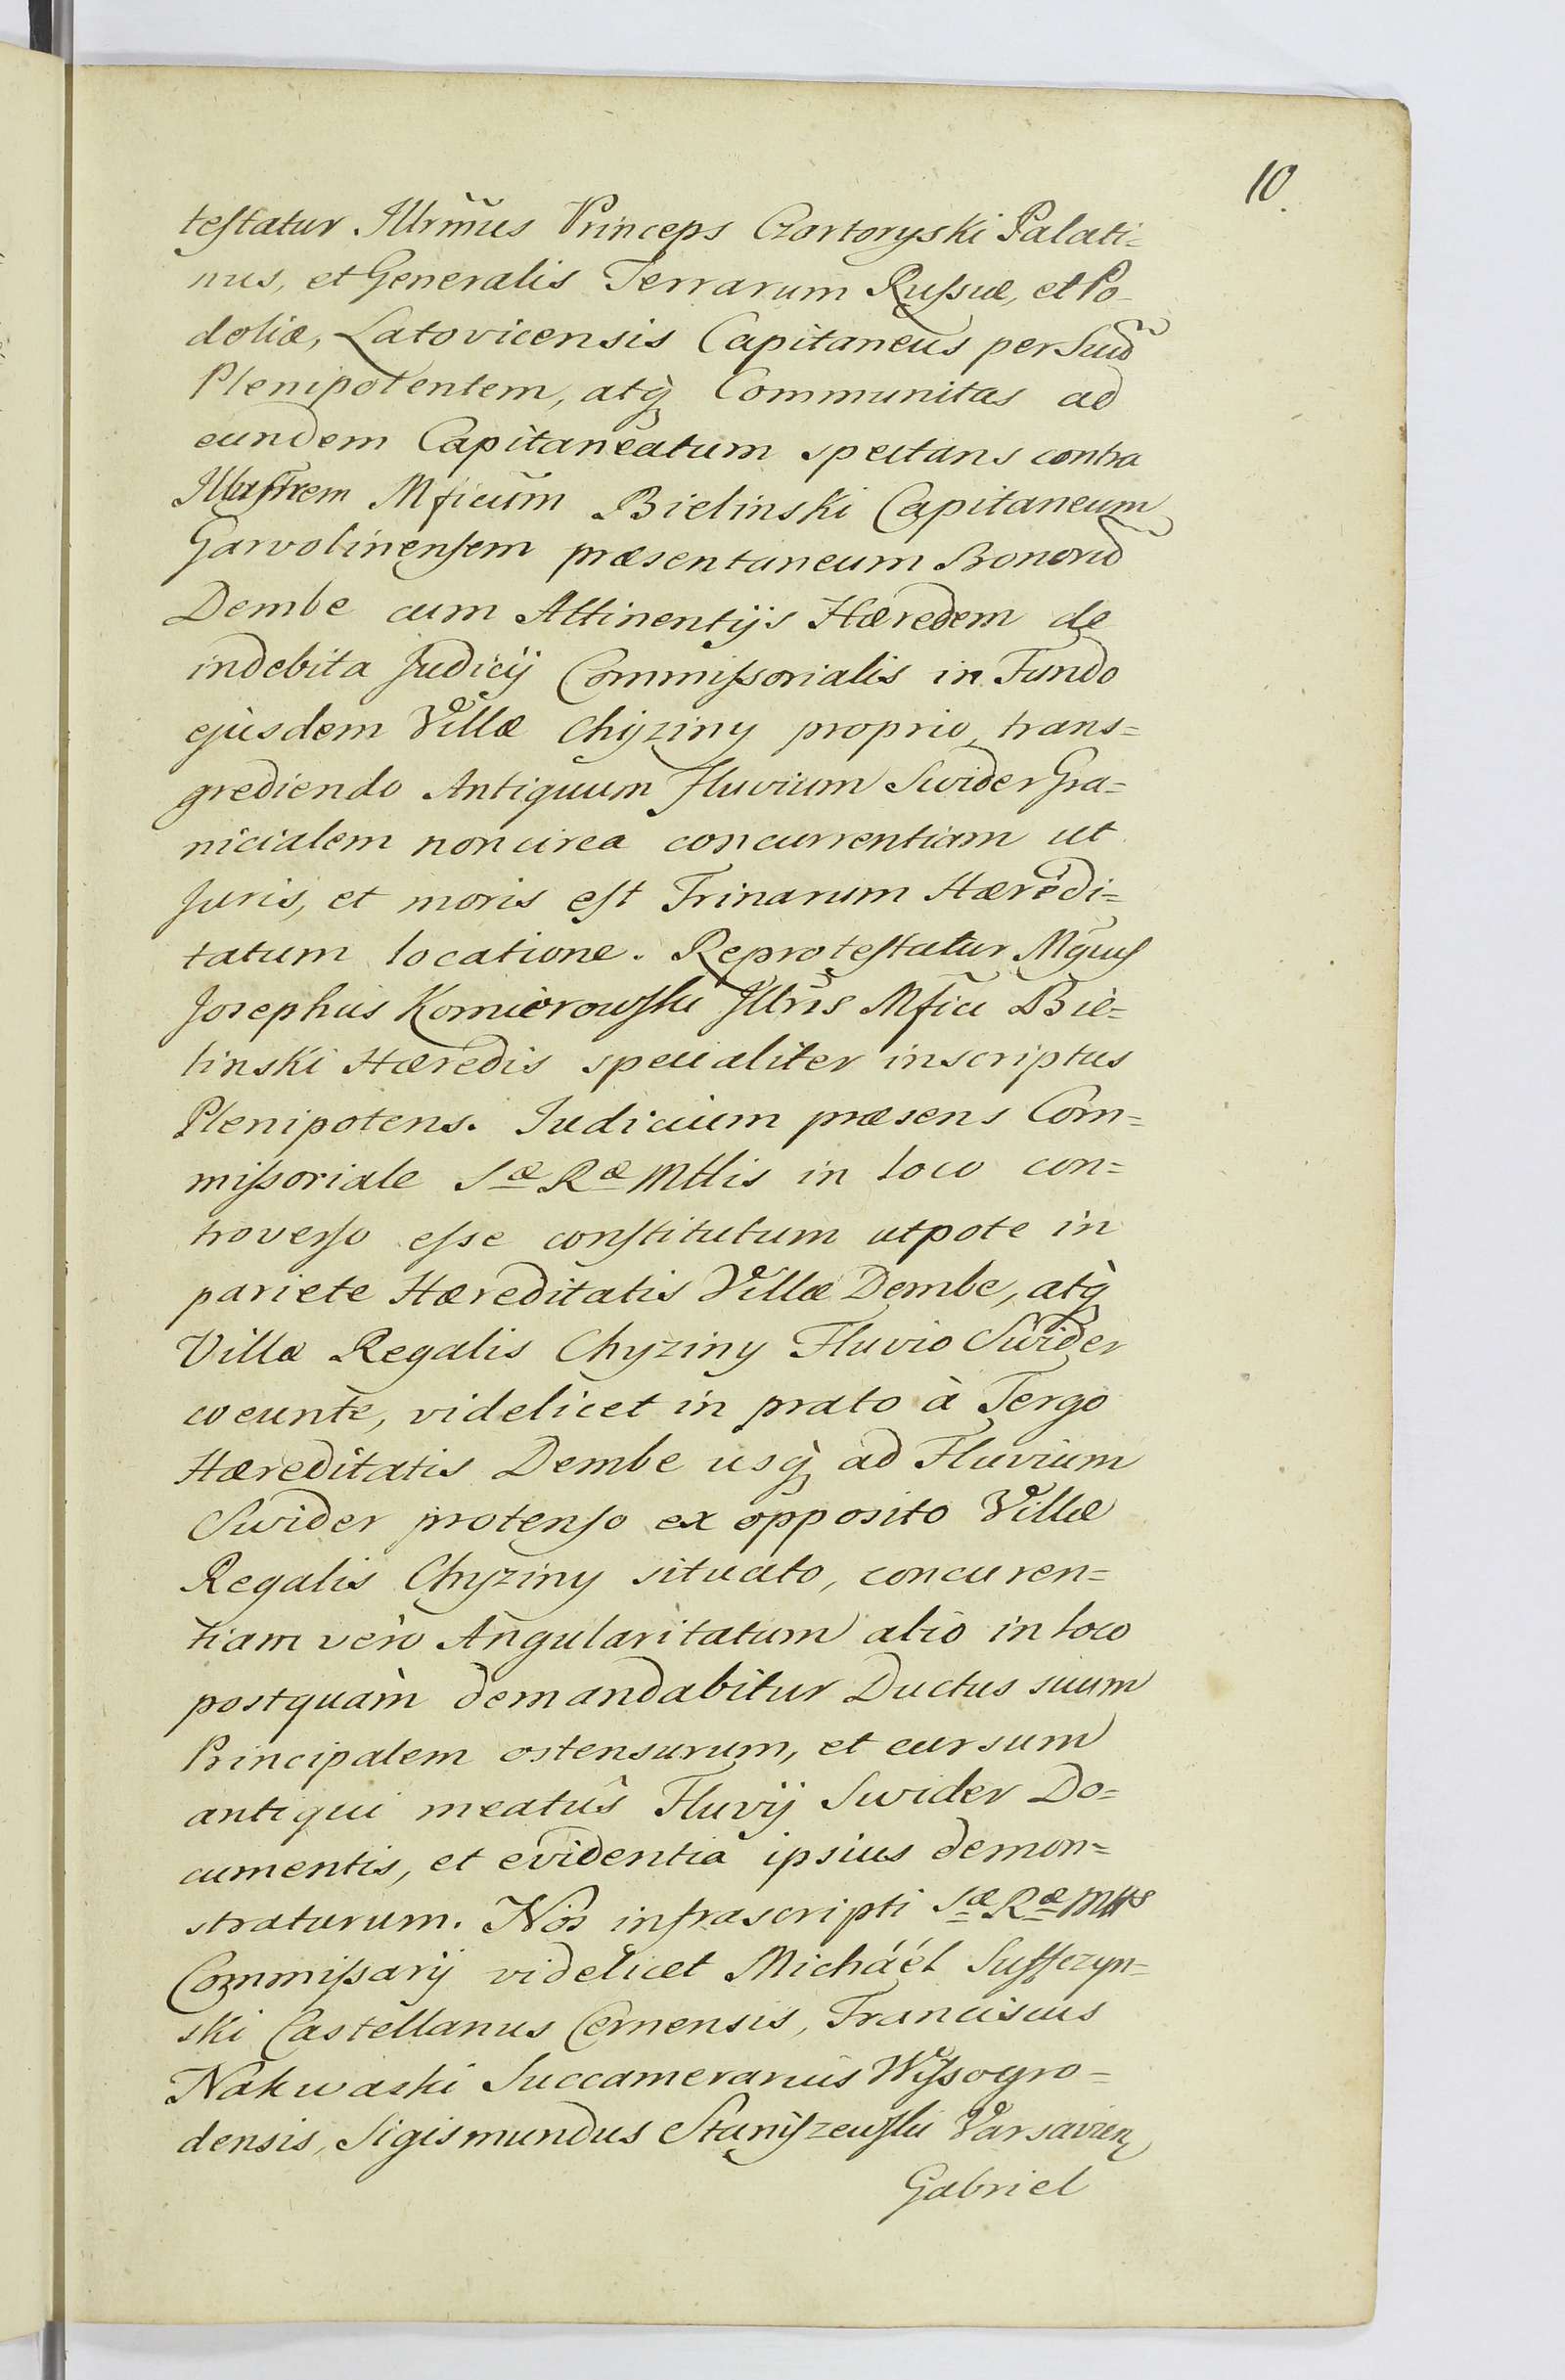 10.
testatur Illrm̃us Princeps Czartoryski Palati=
nus, et Generalis Terrarum Russiæ, et Po-
doliæ, Latovicensis Capitaneus per Suũ
Plenipotentem, atq̀ Communitas ad
eundem Capitaneatum spectans contra
Illustrem Mficũm Bielinski Capitaneum
Garvolinensem præsentaneum Bonorũ
Dembe cum Attinentijs Hæredem de
indebita Judicij Commissorialis in Fundo
ejusdem Villæ Chyziny proprio, trans=
grediendo Antiquum Fluvium Swider Gra=
nicialem non circa concurrentiam ut
Juris, et moris est Trinarum Hæredi=
tatum locatione. Reprotestatur Mgũs
Josephus Komierowski Illris Mfici Bie=
linski Hæredis specialiter inscriptus
Plenipotens. Iudicium præsens Com=
missoriale Sæ Ræ Mttis in loco con=
troverso esse constitutum utpote in
pariete Hæreditatis Villæ Dembe, atq̀
Villa Regalis Chyziny Fluvio Swider
coeunte, videlicet in prato à Tergo
Hæreditatis Dembe usq̀ ad Fluvium
Swider protenso ex opposito Villæ
Regalis Chyziny situato, concuren=
tiam verò Angularitatum alio in loco
postquàm demandabitur Ductus suum
Principalem ostensurum, et cursum
antiqui meatûs Fluvij Swider Do=
cumentis, et evidentia ipsius demon=
straturum. Nos infrascripti Sæ Ræ Mttis
Commissarij videlicet Micháél Suffczyn=
ski Castellanus Cernensis, Franciscus
Nakwaski Succamerarius Wyssogro=
densis, Sigismundus Staniszewski Varsavien
Gabriel